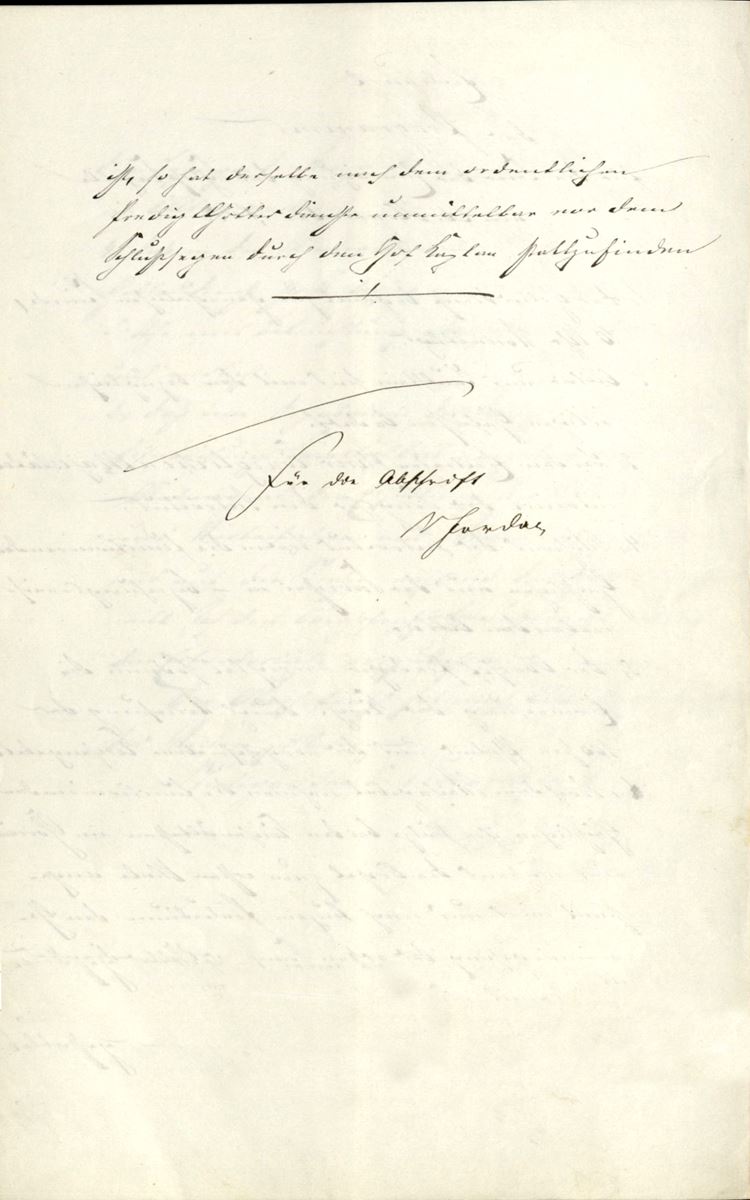 ist, so hat derselbe nach dem ordentlichen
Predigt Gottesdienste unmittelbar vor dem
Schlußsegen durch den Hof Kaplan stattzufinden
Für die Abschrift
Jordan